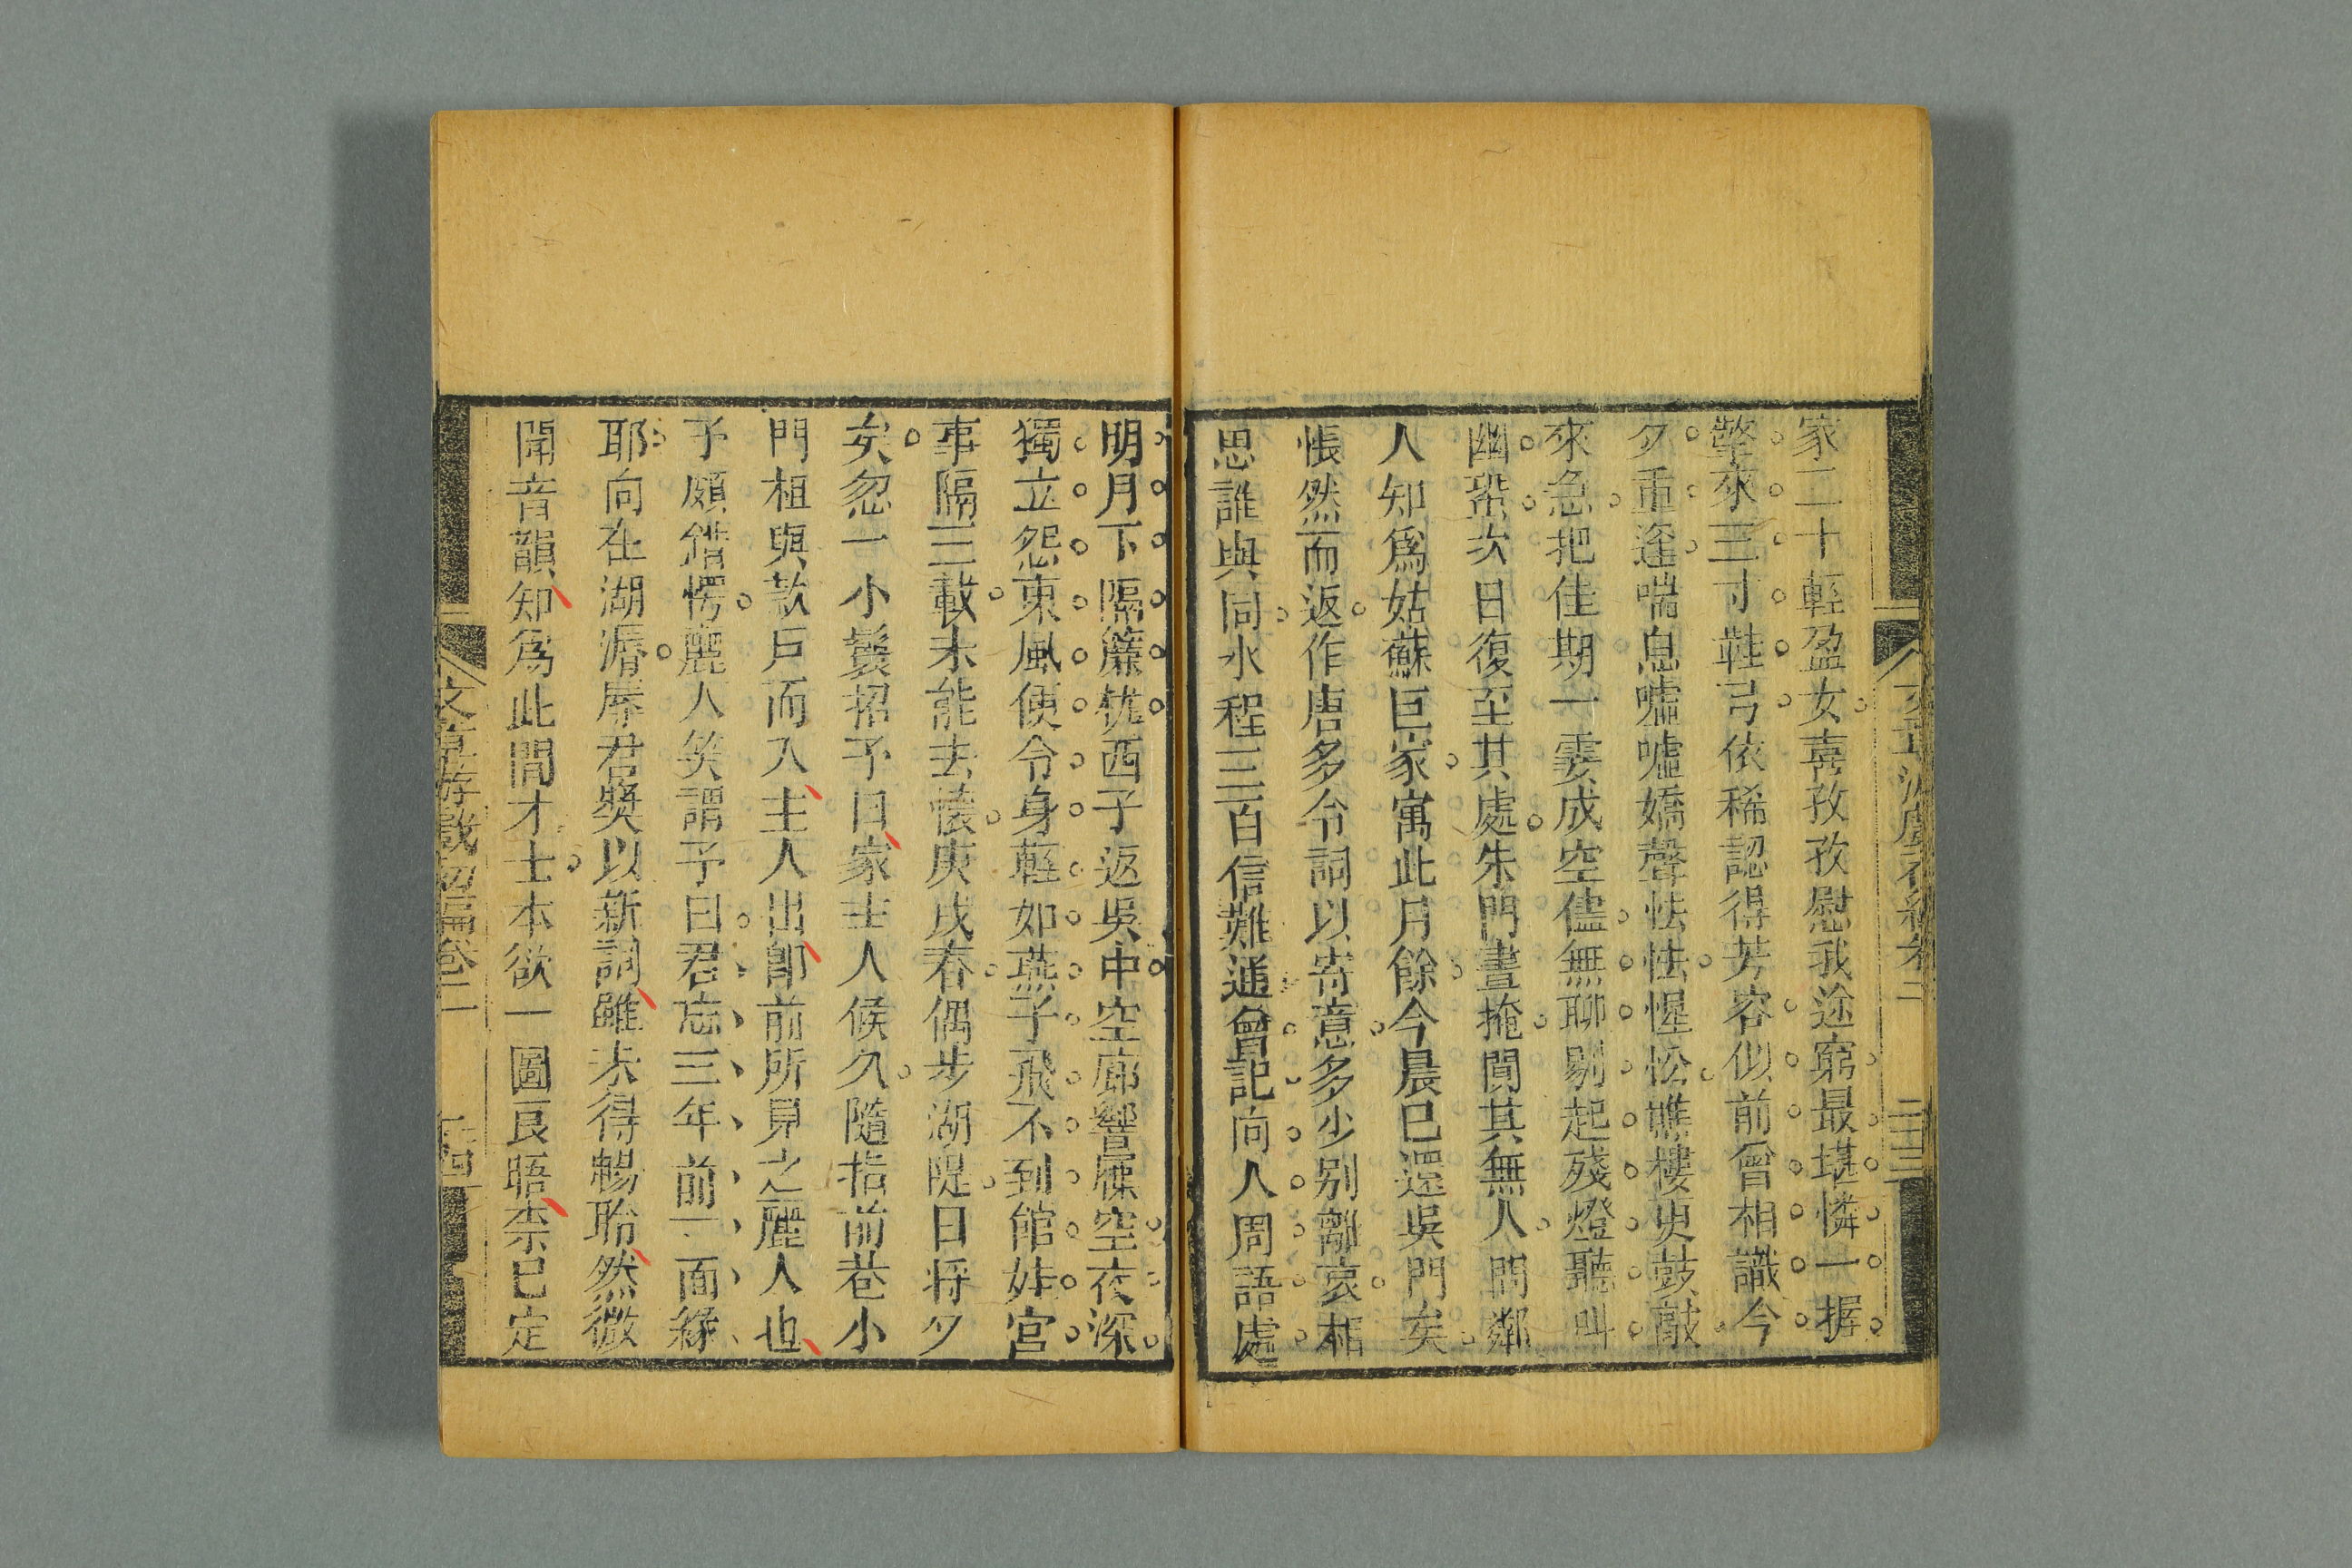 家二十輕盈女喜孜孜慰我途窮最堪憐一握
擎來三寸鞋弓依稀認得芳容似前曾相識今
夕重逢喘息噓噓嬌聲怯怯惺忪譙樓更鼓敲
來急把佳期一霎成空儘無聊剔起殘燈聽叫
幽蛩次日復至其處朱門晝掩閴其無人問鄰
人知爲姑蘇巨家寓此月餘今晨已還吳門矣
悵然而返作唐多令詞以寄意多少別離哀相
思誰與同水程三百信難通曾記向人周語處
明月下隔簾櫳西子返吳中空廊響屧空夜深
獨立怨東風便令身輕如燕子飛不到館娃宮
事隔三載未能去懷庚戌春偶步湖隄日將夕
矣忽一小鬟招予曰家主人候久隨指前巷小
門相與款戶而入主人出卽前所見之麗人也
予頗錯愕麗人笑謂予曰君忘三年前一面緣
耶向在湖濱辱君獎以新詞雖未得暢聆然微
聞音韻知爲此間才士本欲一圖良晤柰已定
文章游戲初編卷二
二十四